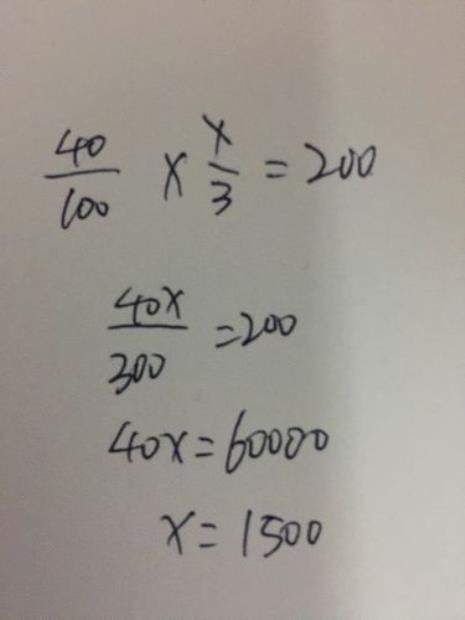 40/100 × x/3 = 200
40x/300 = 200
40x = 60000
x = 1500